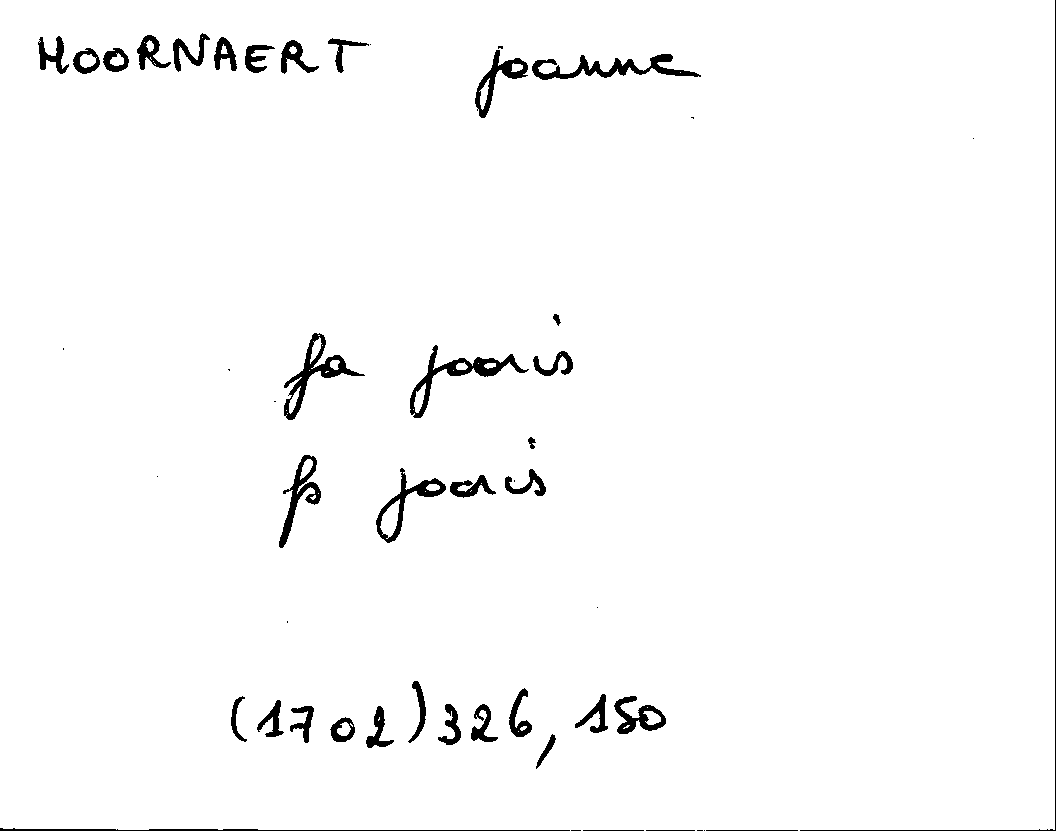 MOORNAERT joanne
fa jooris
p jooris
(1702) 326, 150